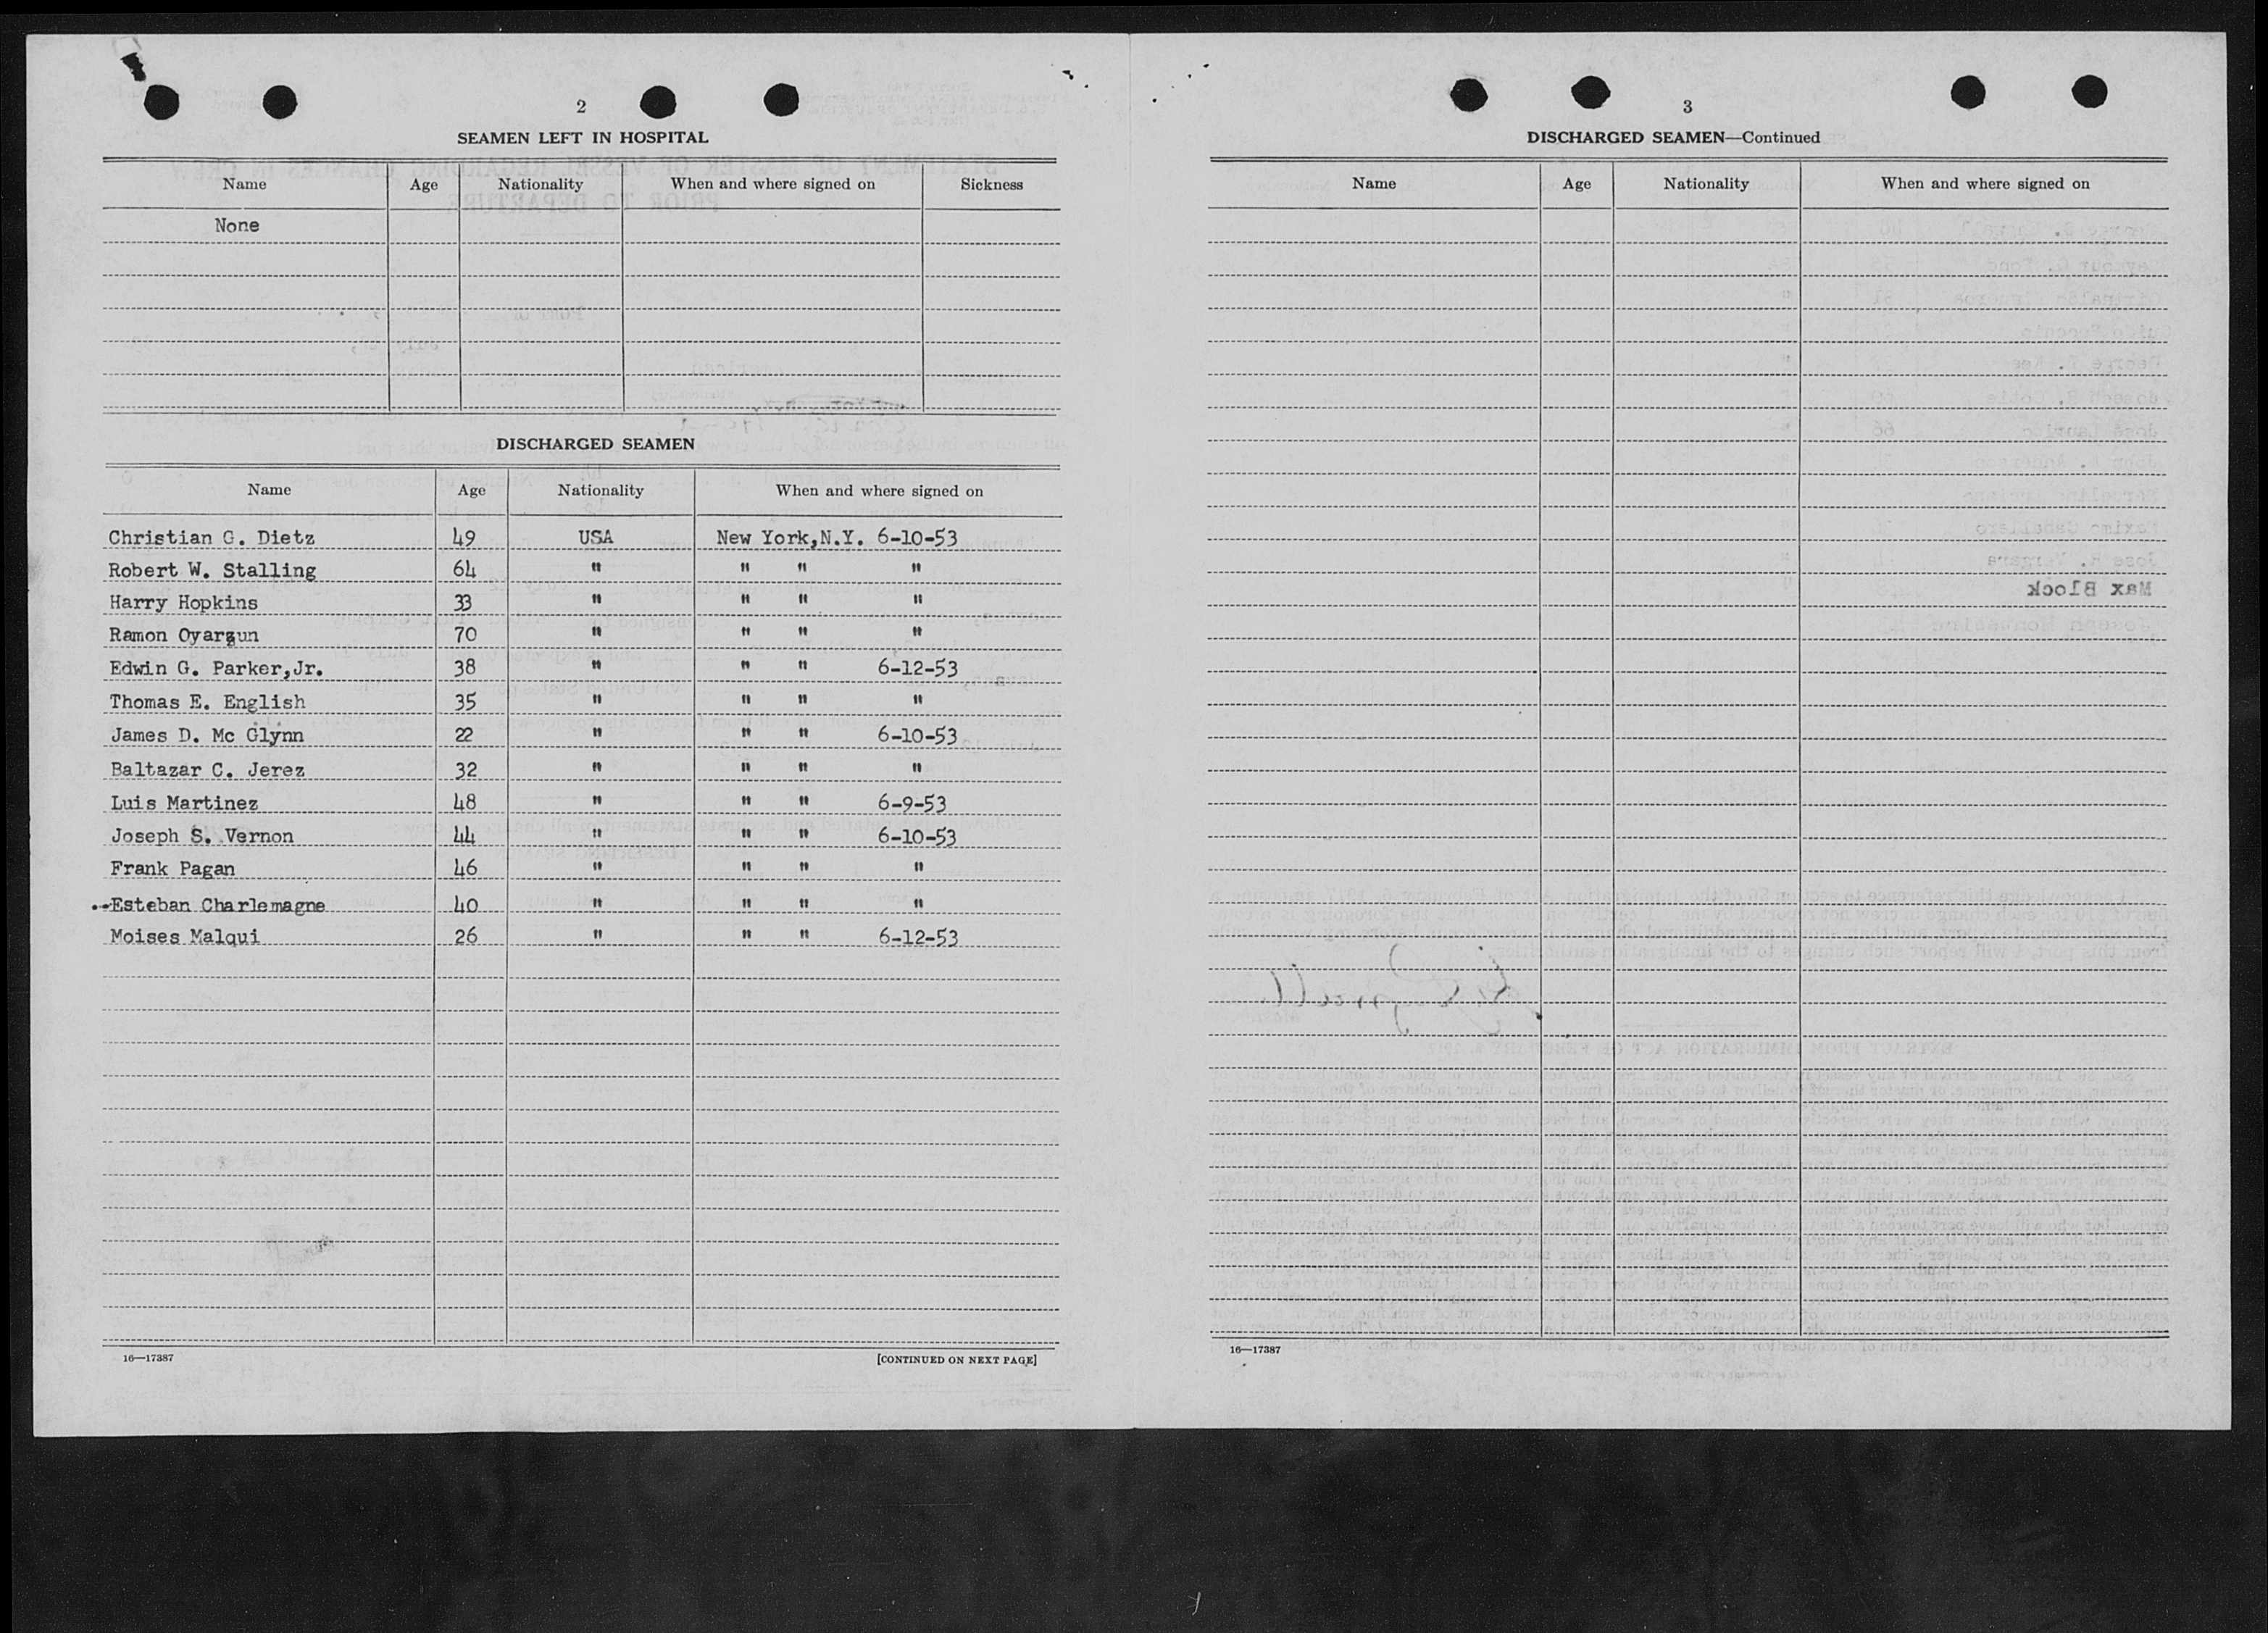 2
SEAMEN LEFT IN HOSPITAL
Name Age Nationality When and where signed on Sickness
None
DISCHARGED SEAMEN
Name Age Nationality When and where signed on
Christian G. Dietz 49 USA New York,N.Y. 6-10-53
Robert W. Stalling 64 " " " "
Harry Hopkins 33 " " " "
Ramon Oyarzun 70 " " " "
Edwin G. Parker,Jr. 38 " " " 6-12-53
Thomas E. English 35 " " " "
James D. Mc Glynn 22 " " " 6-10-53
Baltazar C. Jerez 32 " " " "
Luis Martinez 48 " " " 6-9-53
Joseph S. Vernon 44 " " " 6-10-53
Frank Pagan 46 " " " "
Esteban Charlemagne 40 " " " "
Moises Malqui 26 " " " 6-12-53
16—17387 [CONTINUED ON NEXT PAGE]
3
DISCHARGED SEAMEN—Continued
Name Age Nationality When and where signed on
Max Block
16—17387